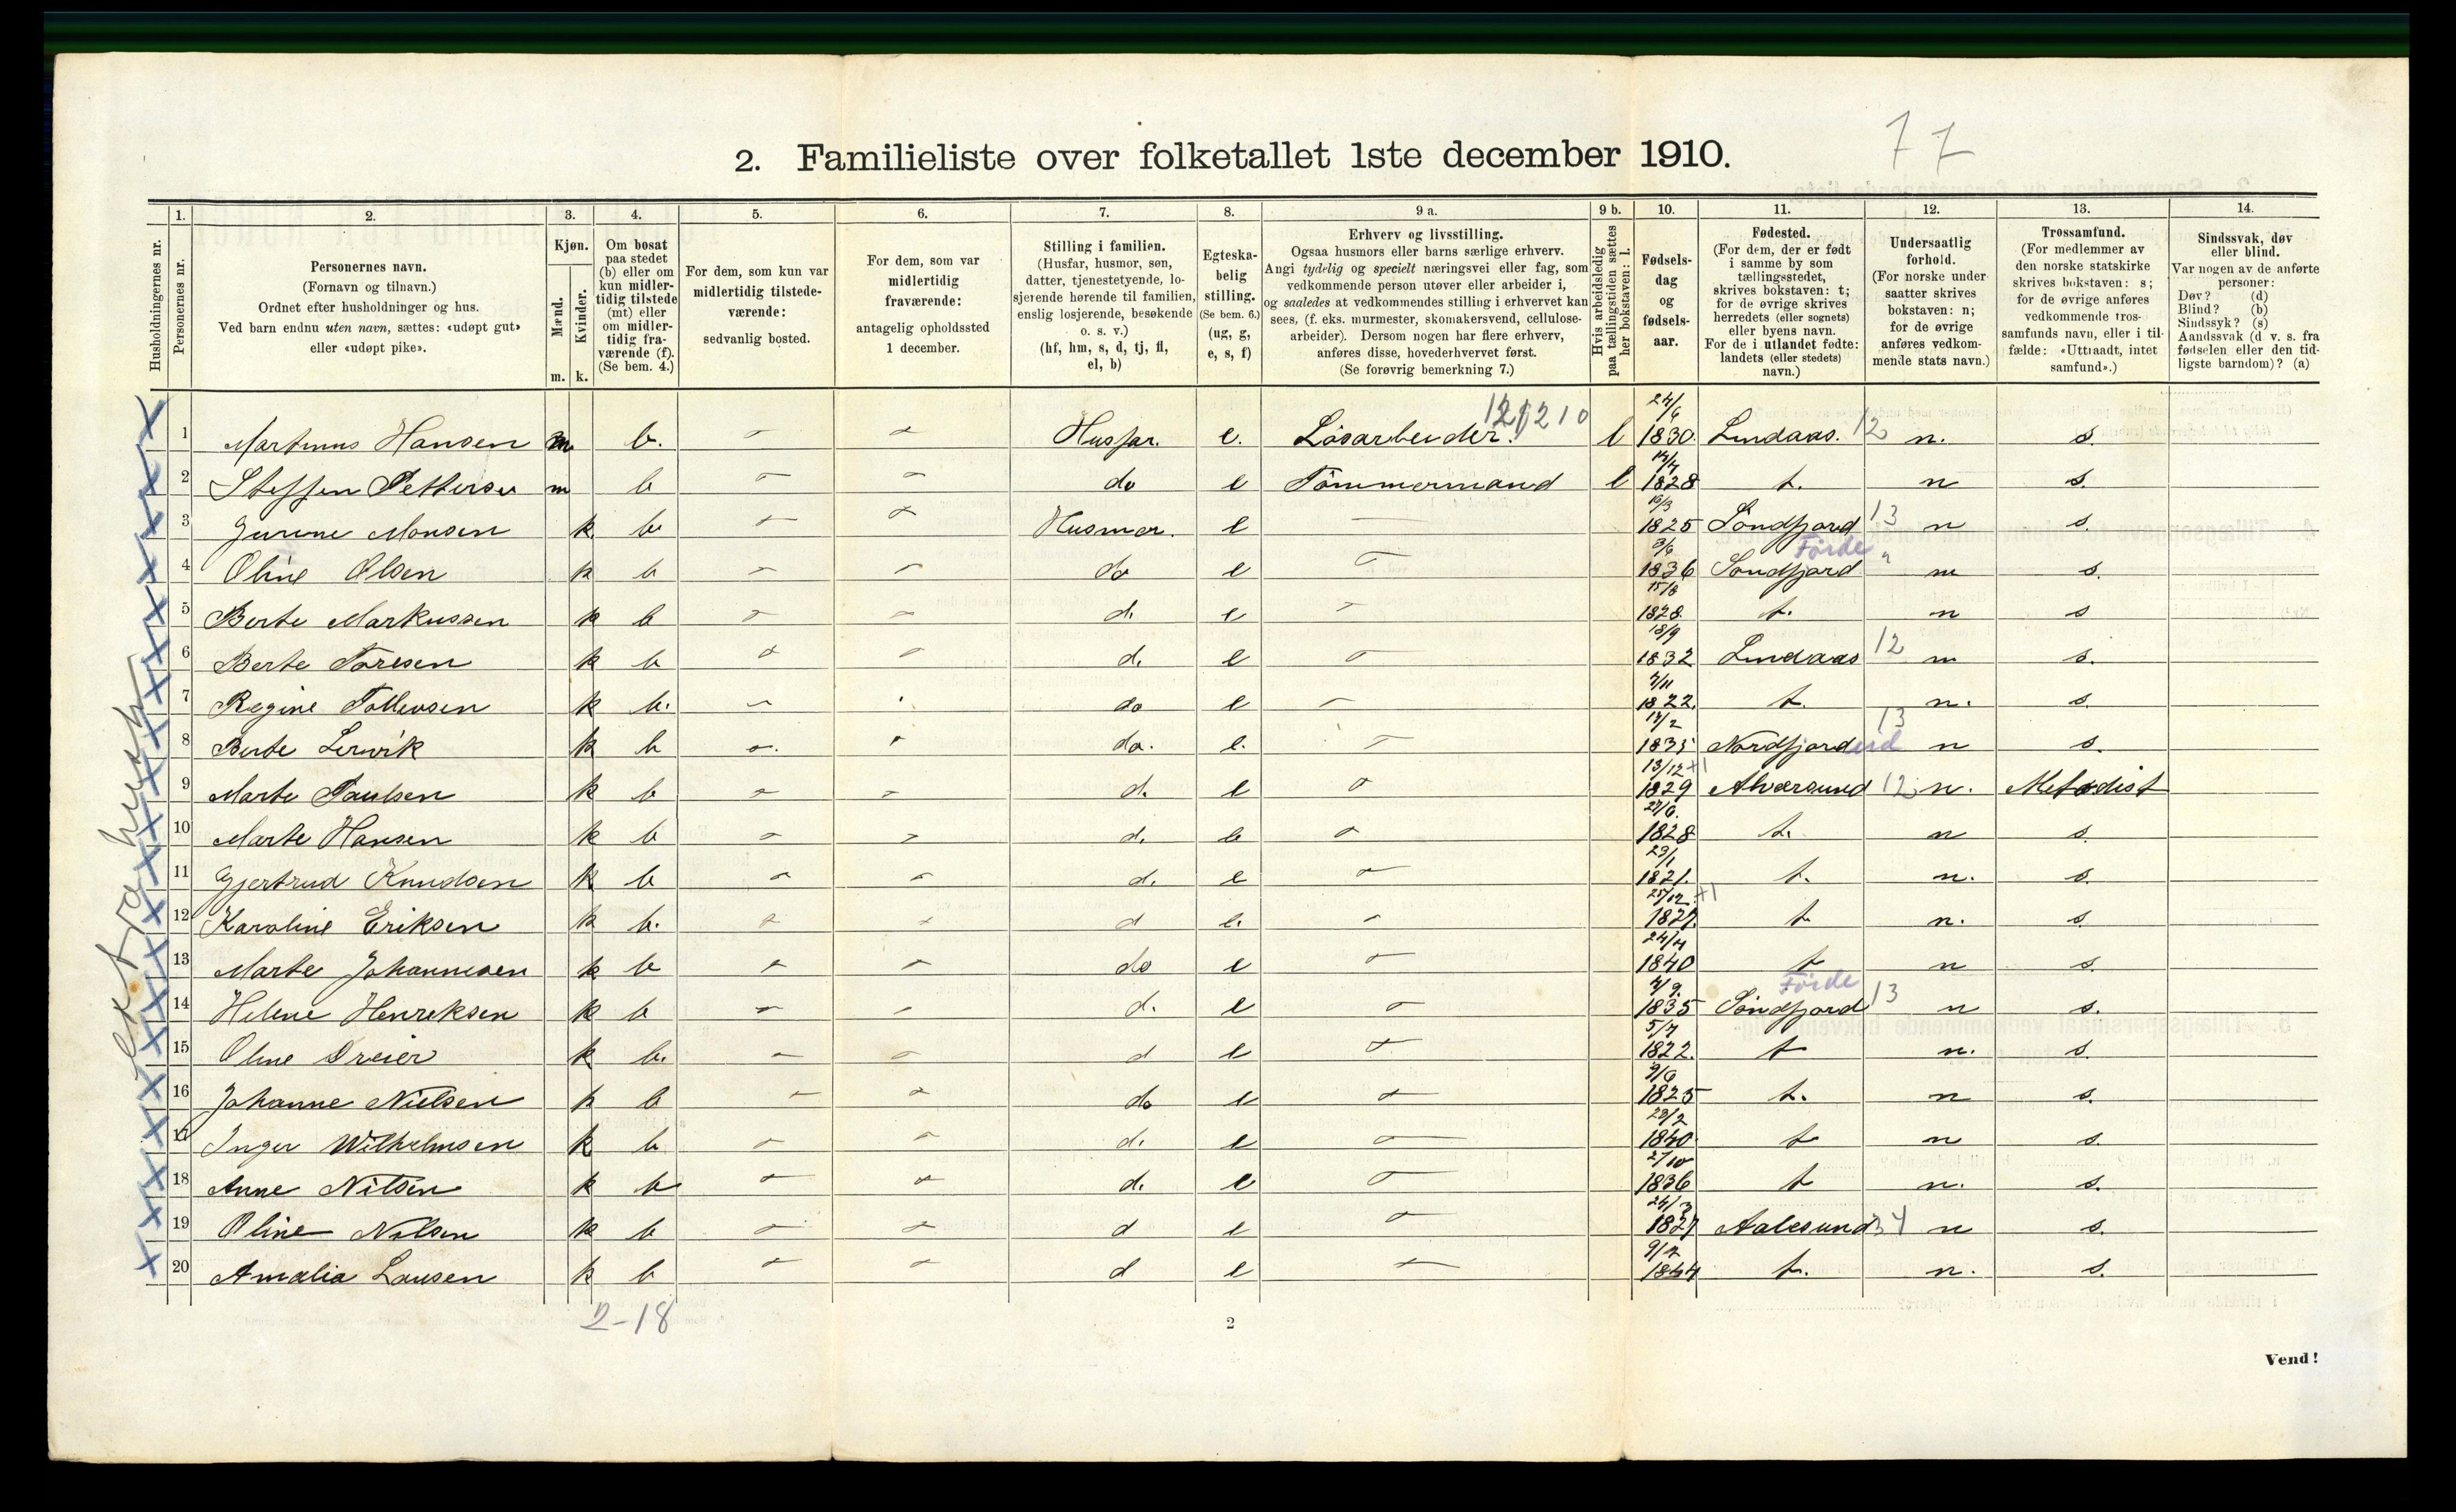 77
2. Familieliste over folketallet 1ste december 1910.
1. 2. 3. 4. 5. 6. 7. 8. 9 a. 9 b. 10. 11. 12. 13. 14.
Husholdningernes nr.
Personernes nr.
Personernes navn.
(Fornavn og tilnavn.)
Ordnet efter husholdninger og hus.
Ved barn endnu uten navn, sættes: «udøpt gut»
eller «udøpt pike».
Kjøn.
Mænd.
Kvinder.
m. k.
Om bosat
paa stedet
(b) eller om
kun midler-
tidig tilstede
(mt) eller
om midler-
tidig fra-
værende (f).
(Se bem. 4.)
For dem, som kun var
midlertidig tilstede-
værende:
sedvanlig bosted.
For dem, som var
midlertidig
fraværende:
antagelig opholdssted
1 december.
Stilling i familien.
(Husfar, husmor, søn,
datter, tjenestetyende, lo-
sjerende hørende til familien,
enslig losjerende, besøkende
o. s. v.)
(hf, hm, s, d, tj, fl,
el, b)
Egteska-
belig
stilling.
(Se bem. 6.)
(ug, g,
e, s, f)
Erhverv og livsstilling.
Ogsaa husmors eller barns særlige erhverv.
Angi tydelig og specielt næringsvei eller fag, som
vedkommende person utøver eller arbeider i,
og saaledes at vedkommendes stilling i erhvervet kan
sees, (f. eks. murmester, skomakersvend, cellulose-
arbeider). Dersom nogen har flere erhverv,
anføres disse, hovederhvervet først.
(Se forøvrig bemerkning 7.)
Hvis arbeidsledig
paa tællingstiden sættes
her bokstaven: l.
Fødsels-
dag
og
fødsels-
aar.
Fødested.
(For dem, der er født
i samme by som
tællingsstedet,
skrives bokstaven: t;
for de øvrige skrives
herredets (eller sognets)
eller byens navn.
For de i utlandet fødte:
landets (eller stedets)
navn.)
Undersaatlig
forhold.
(For norske under-
saatter skrives
bokstaven: n;
for de øvrige
anføres vedkom-
mende stats navn.)
Trossamfund.
(For medlemmer av
den norske statskirke
skrives bokstaven: s;
for de øvrige anføres
vedkommende tros-
samfunds navn, eller i til-
fælde: «Uttraadt, intet
samfund».)
Sindssvak, døv
eller blind.
Var nogen av de anførte
personer:
Døv? (d)
Blind? (b)
Sindssyk? (s)
Aandssvak (d. v. s. fra
fødselen eller den tid-
ligste barndom)? (a)
1 Martinus Hansen m b. Husfar. e. Løsarbeider. l 24/6 1830 Lindaas. 12 n. s.
2 Steffen Pettersen m b do e Tömmermand l 1828 t. n s.
3 Jurine Monsen k b Husmor. e 16/3 1825 Söndfjord 13 n s.
4 Oline Olsen k b do e 3/6 1836 Söndfjord Förde " n s.
5 Berte Markussen k b d. e 15/8 1828. t. n s
6 Berte Toresen k b d. e 18/9 1832 Lindaas 12 n s.
7 Regine Tollevsen k b. do e 1822. t. n. s.
8 Berte Lervik k b do. e. 1835 Nordfjord eid 13 n s.
9 Marte Paulsen k b d. e 13/12 +1 1829 Alversund 12 n. Metodist
10 Marte Hansen k b d. e 27/6. 1828 t. n s.
11 Gjertrud Knudsen k b d. e 29/1 1821. t. n. s.
12 Karoline Eriksen k b. d e. 25/12 +1 1827. t n. s.
13 Marte Johannesen k b do e 24/4 1840 t n s.
14 Helene Henreksen k b d. e 1835 Söndfjord Förde 13 n s.
15 Oline Dreier k b. d e 5/7 1822. t n. s.
16 Johanne Nielsen k b do e 9/6 1825 t. n s.
17 Inger Wilhelmsen k b d. e 28/2 1840 t n s.
18 Anne Nilsen k b d. e 2/10 1836 t n. s.
19 Oline Nilsen k b d e 24/3 1827 Aalesund n s.
20 Amalia Lausen k b d e 1844 t. n. s.
ekstrahush
2-18
2
Vend!